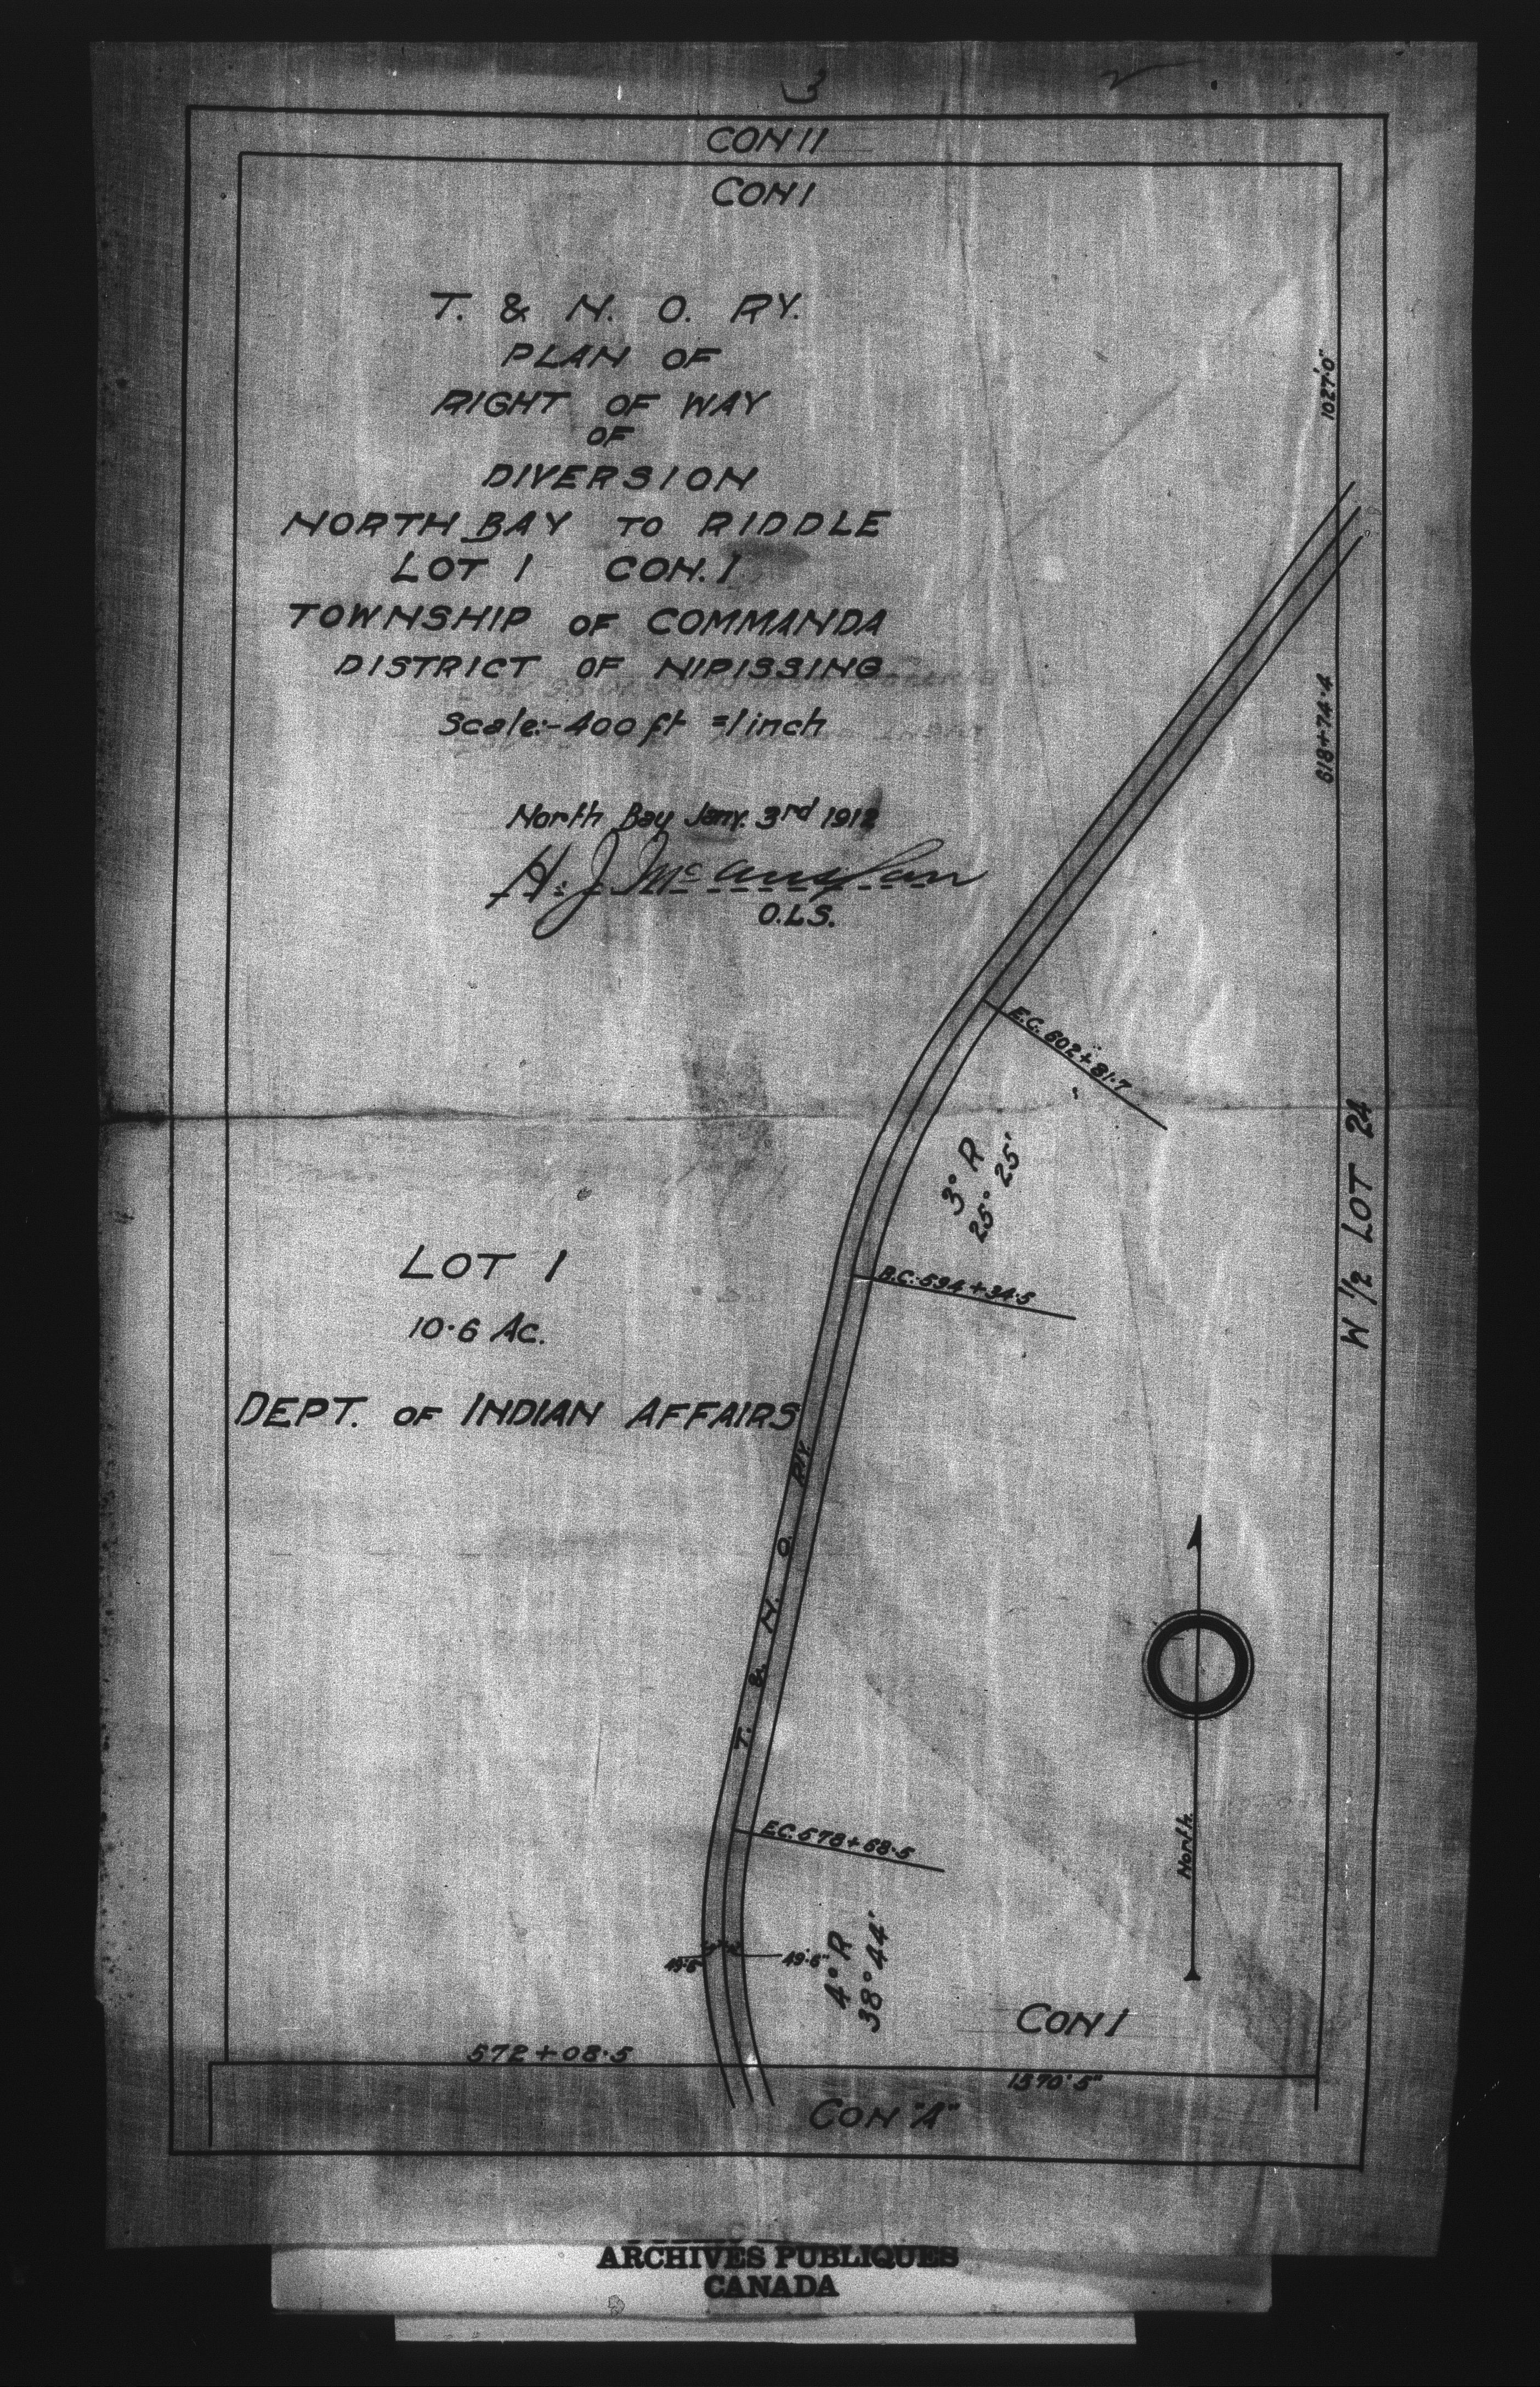 3
CON II
CON I
T. & N. O. RY.
PLAN OF
RIGHT OF WAY
OF
DIVERSION
NORTH BAY TO RIDDLE
LOT 1 CON. I
TOWNSHIP OF COMMANDA
DISTRICT OF NIPISSING
Scale:- 400 ft = 1 inch
North Bay Jany. 3rd 1912
H. J. McAuslan
O.L.S.
1027'0"
618+74.4
E.C. 602+81.7
3° R
25° 25'
B.C. 594+34.5
W 1/2 LOT 24
LOT 1
10.6 Ac.
DEPT. OF INDIAN AFFAIRS
T. & N. O. RY.
E.C. 578+68.5
North.
49'6"
49'6"
4° R
38° 44'
CON I
572+08.5
1570'5"
CON "A"
ARCHIVES PUBLIQUES
CANADA